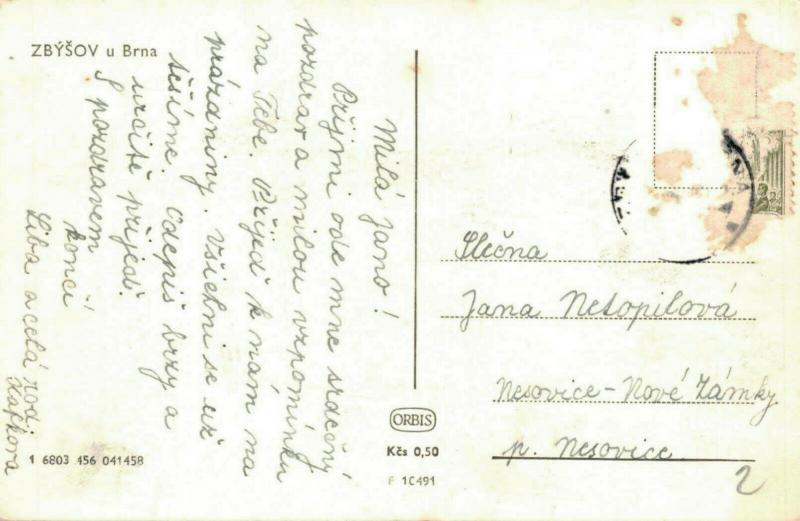 ZBÝŠOV u Brna
Milá Jano!
Přijmi ode mne srdečný
pozdrav a milou vzpomínku
na Tebe. Přijeď k nám na
prázdniny. Všichni se už
těšíme. Odepiš brzy a
určitě přijeď.
S pozdravem
končí
Liba a celá rod.
Kafkova
Slečna
Jana Netopilová
Nesovice-Nové Zámky
p. Nesovice
2
ORBIS
Kčs 0,50
F 10491
1 6803 456 041458